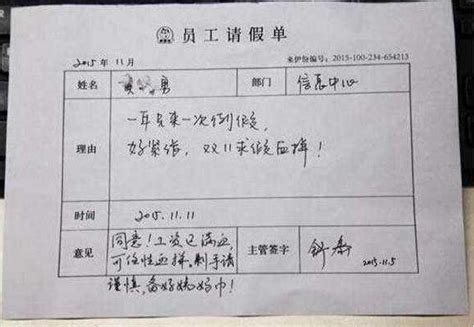 员工请假单
2015年11月
来伊份编号：2015-100-234-654213
姓名 男 部门 信息中心
理由
一年只来一次例假,
好紧张, 双11来假血拼!
时间 2015.11.11
意见
同意!工资已满血,
可任性血拼。剁手请
谨慎,备好姨妈巾!
主管签字
2015.11.5